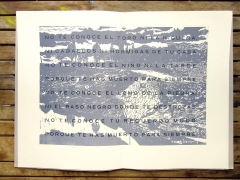 NO TE CONOCE EL TORO NI LA HIGUERA
NI CABALLOS NI HORMIGAS DE TU CASA
NO TE CONOCE EL NIÑO NI LA TARDE
PORQUE TE HAS MUERTO PARA SIEMPRE
NO TE CONOCE EL LOMO DE LA PIEDRA
NI EL RASO NEGRO DONDE TE DESTROZAS
NO TE CONOCE TU RECUERDO MUDO
PORQUE TE HAS MUERTO PARA SIEMPRE